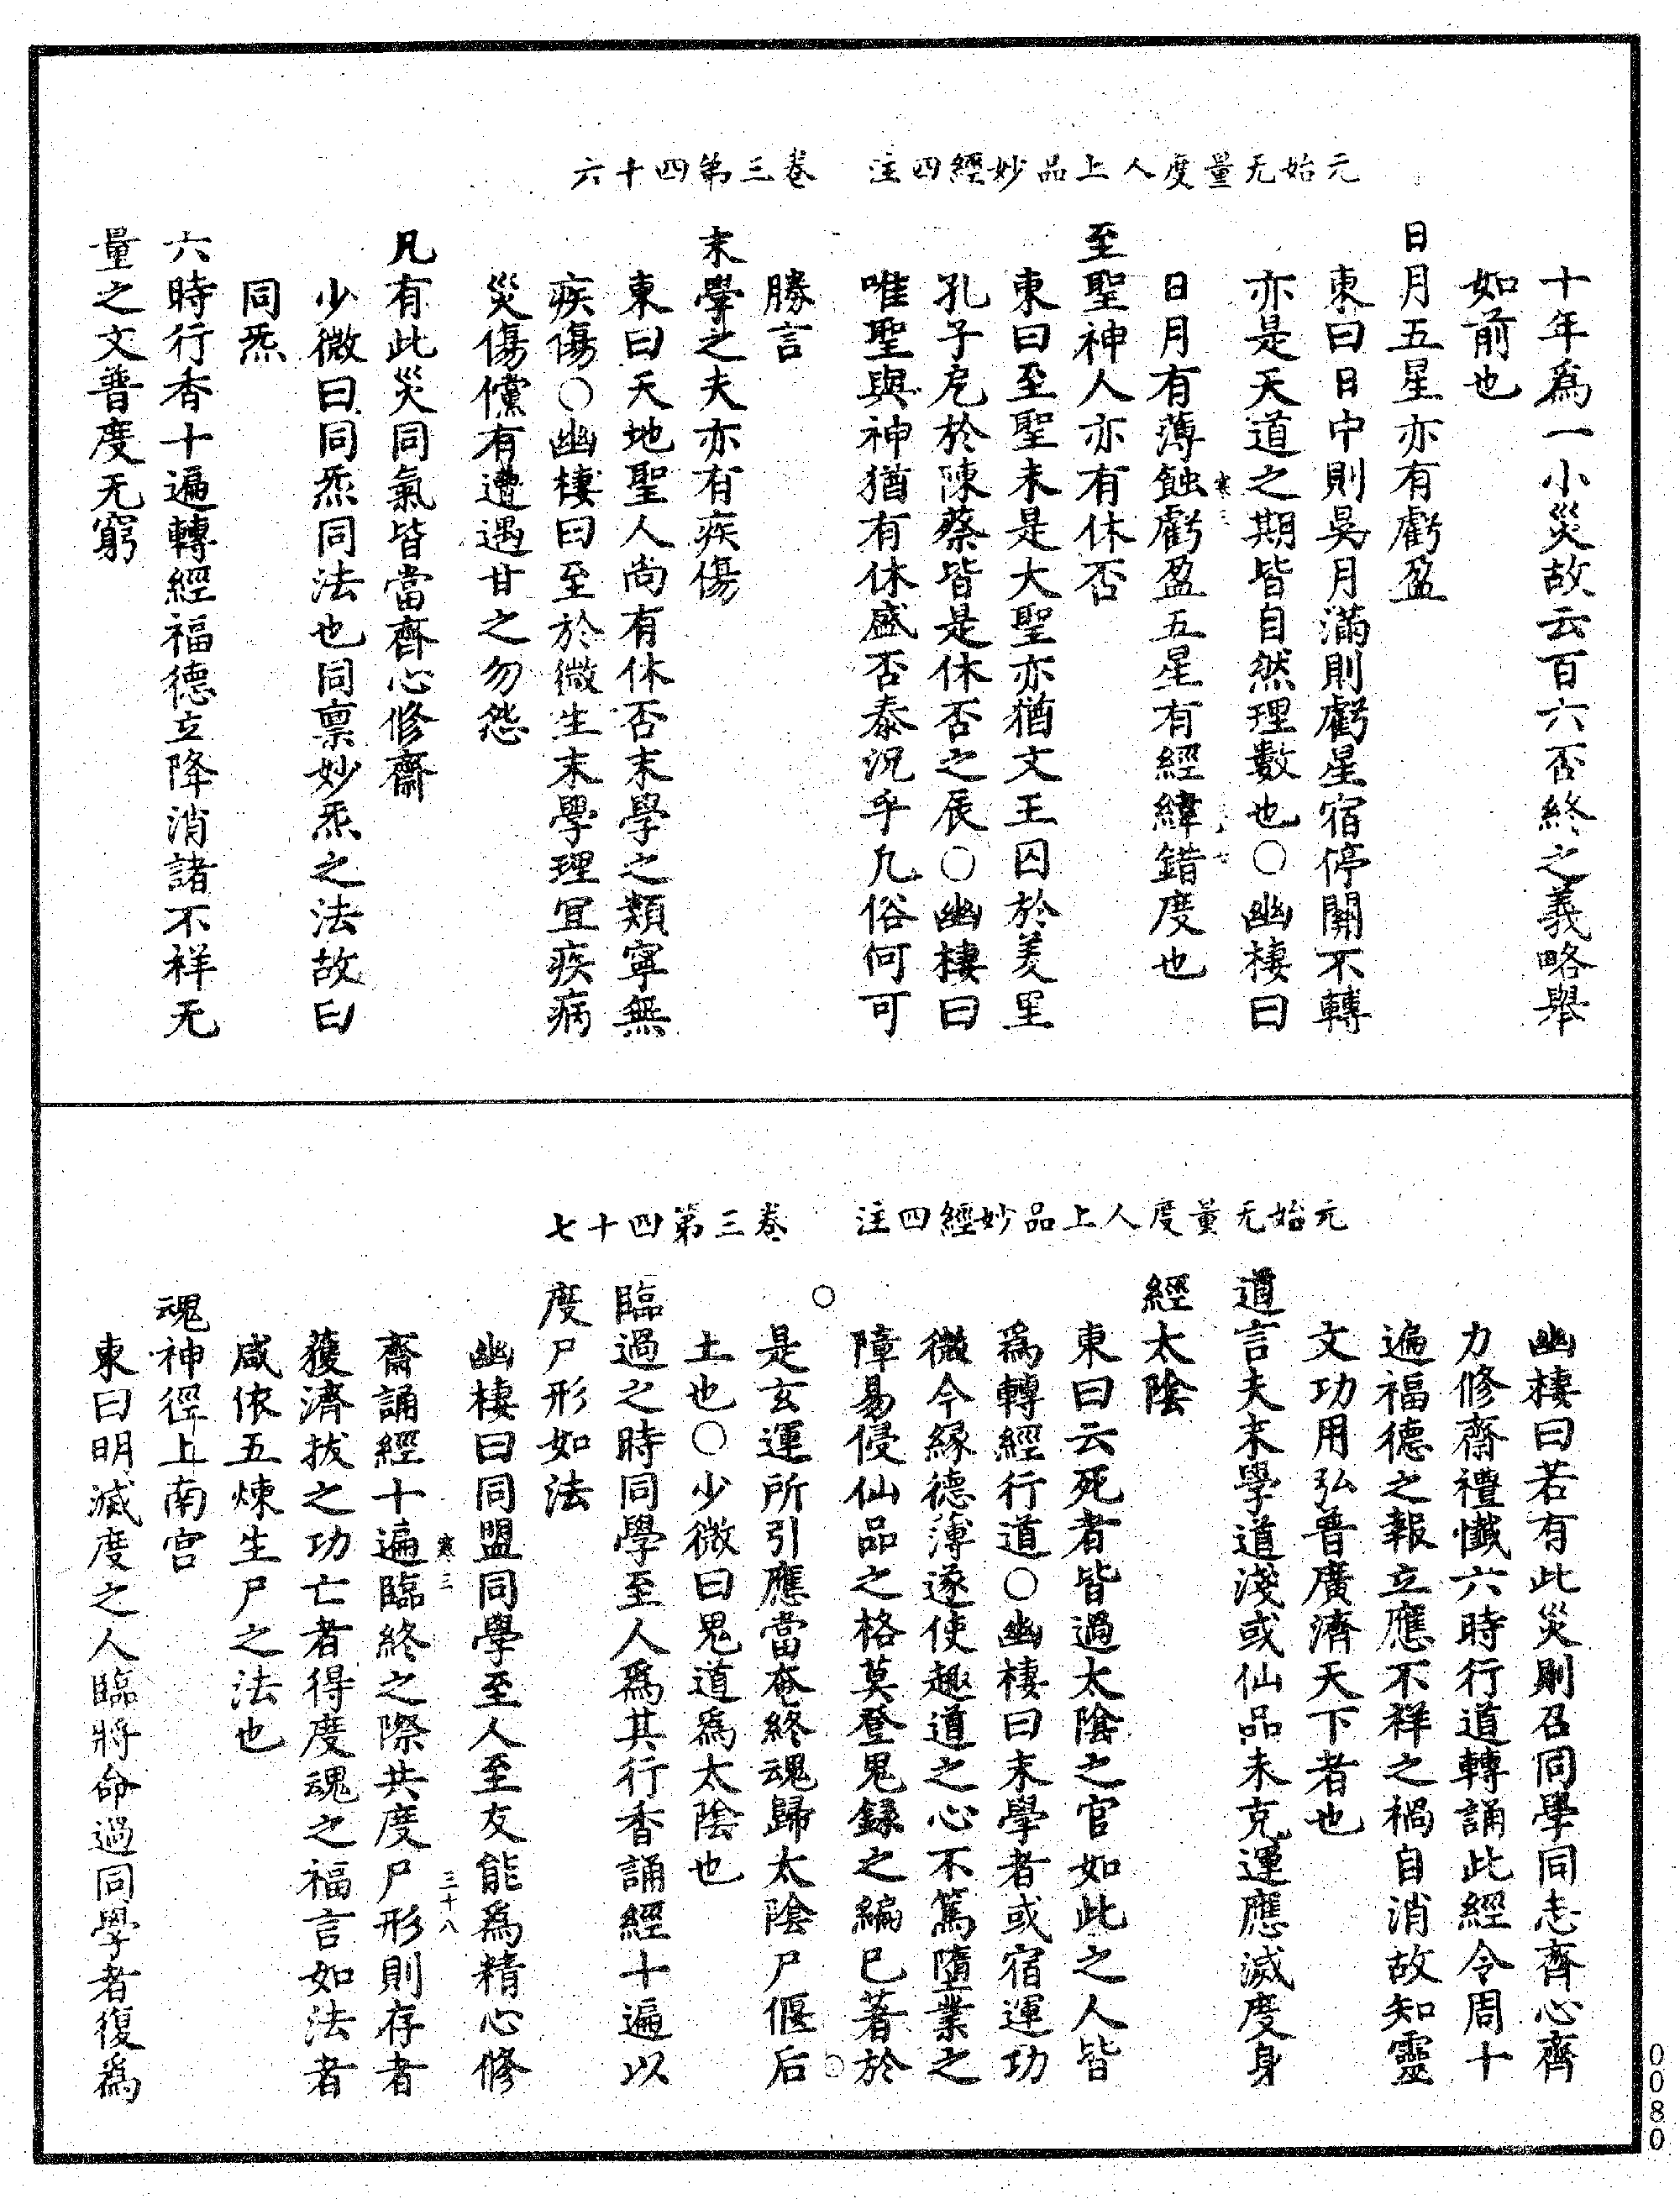 元始无量度人上品妙經四注　卷三第四十六
十年爲一小災故云百六否終之義略舉
如前也
日月五星亦有虧盈
東曰日中則昃月滿則虧星宿停關不轉
亦是天道之期皆自然理數也○幽棲曰
寒三
日月有薄蝕虧盈五星有經緯錯度也
至聖神人亦有休否
東曰至聖聖末是大聖亦猶文王囚於羑里
孔子戹於陳蔡皆是休否之辰○幽棲曰
唯聖與神猶有休盛否泰況乎凡俗何可
勝言
末學之夫亦有疾傷
東曰天地聖人尚有休否末學之類寧無
疾傷○幽棲曰至於微生末學理宜疾病
災傷儻有遭遇甘之勿怨
凡有此災同氣皆當齊心修齋
少微曰同炁同法也同禀妙炁之法故曰
同炁
六時行香十遍轉經福德立降消諸不祥无
量之文普度无窮
元始无量度人上品妙經四注　卷三第四十七
幽棲曰若有此災則召同學同志齊心齊
力修齋禮懺六時行道轉誦此經令周十
遍福德之報立應不祥之禍自消故知靈
文功用弘普廣濟天下者也
道言夫末學道淺或仙品未充運應滅度身
經太陰
東曰云死者皆過太陰之官如此之人皆
爲轉經行道○幽棲曰末學者或宿運功
微今緣德薄遂使趣道之心不篤墮業之
障易侵仙品之格莫登鬼錄之編已著於
○
是玄運所引應當奄終魂歸太陰尸偃后
土也○少微曰鬼道爲太陰也
臨過之時同學至人爲其行香誦經十遍以
度尸形如法
幽棲曰同盟同學至人至友能爲精心修
寒三　三十八
齋誦經十遍臨終之際共度尸形則存者
獲濟拔之功亡者得度魂之福言如法者
咸依五煉生尸之法也
魂神徑上南宮
東曰明滅度之人臨將命過同學者復爲
0080